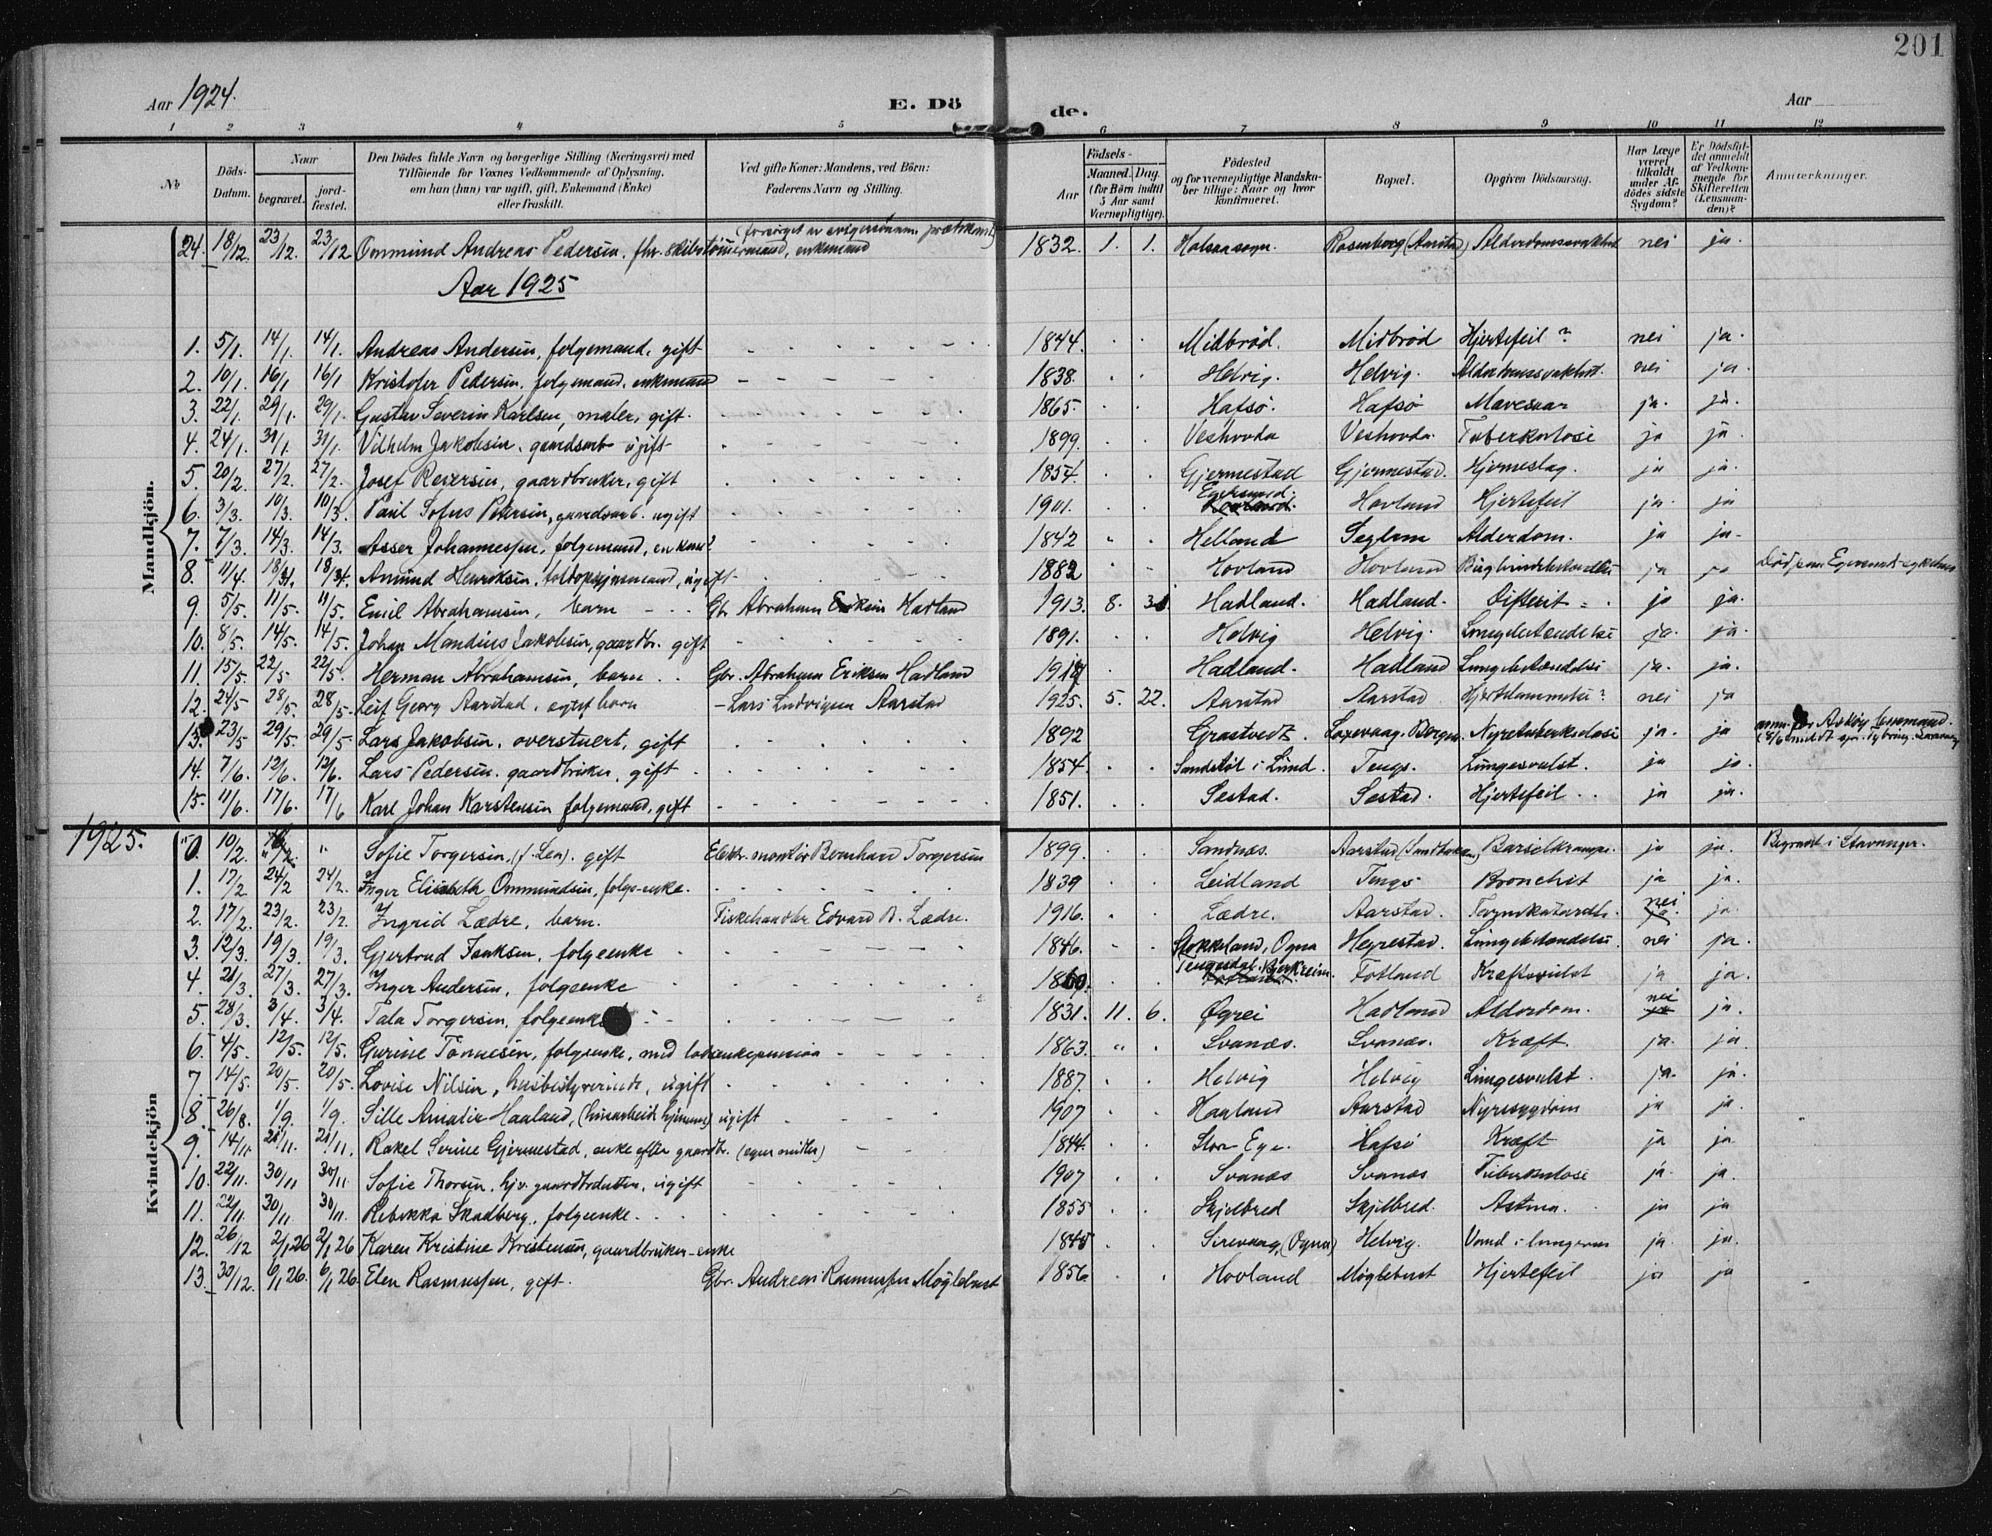 201
Aar 1924.
E. Dö de.
Aar
1 2 3 4 5 6 7 8 9 10 11 12
No
Döds-Datum.
Naar
begravet. jordfæstet.
Den Dödes fulde Navn og borgerlige Stilling (Næringsvei) med Tilföiende for Voxnes Vedkommende af Oplysning, om han (hun) var ugift, gift, Enkemand (Enke) eller fraskilt.
Ved gifte Koner: Mandens, ved Börn: Faderens Navn og Stilling.
Födsels-
Aar Maaned. Dag. (for Börn indtil 5 Aar samt Værnepligtige).
Födested og for værnepligtige Mandskaber tillige: Naar og hvor konfirmeret.
Bopæl.
Opgiven Dödsaarsag.
Har Læge været tilkaldt under Afdödes sidste Sygdom?
Er Dödsfaldet anmeldt af Vedkommende for Skifteretten (Lensmanden)?
Anmærkninger.
Mandkjön.
24. 18/12. 23/12. 23/12 Ommund Andreas Pedersen, fhv. skibstømmermand, enkemand 1832. 1. 1. Rosenberg (Aarstad) Alderdomssvakhet nei ja.
Aar 1925
1. 5/1. 14/1. 14/1. Andreas Andersen, folgemand, gift 1844. Midbrød. Midbrød Hjertefeil? nei ja.
2. 10/1. 16/1 16/1 Kristofer Pedersen, folgemand, enkemand 1838. Helvig. Helvig. nei ja.
3. 22/1. 29/1. 29/1. Gustav Severin Karlsen, maler, gift. 1865. Hafsø. Hafsø Mavesaar ja. ja.
4. 24/1. 31/1. 31/1. Vilhelm Jakobsen, gaardsarb. ugift 1899. Veshovda Veshovda. Tuberkulose ja ja.
5. 20/2. 27/2. 27/2. Josef Reiersen, gaardbruker, gift 1854. Gjermestad Gjermestad. Hjerneslag. ja ja.
6. 3/3. 10/3. 10/3. Paul Sofus Petersen, gaardsarb. ugift 1901. Egersund. Hovland Hjertefeil ja. ja
7. 7/3. 14/3. 14/3. Asser Johannessen, folgemand, 1842 Helland Seglem Alderdom. ja ja.
8. 11/4. 18/4. 18/4. Amund Henriksen, ugift 1882 Hovland Hovland ja ja
9. 5/5. 11/5. 11/5. Emil Abrahamsen, barn Gbr. Abraham Eriksen Hadland 1913. 8. Hadland. Hadland. Difterit ja ja.
10. 8/5. 14/5. 14/5. Johan Mandius Jakobsen, gaardbr. gift 1891. Helvig Helvig. Lungebetændelse ja. ja.
11. 15/5. 22/5. 22/5. Herman Abrahamsen, barn Gbr. Abraham Eriksen Hadland Hadland. Hadland Lungebetændelse ja. ja.
12. 24/5 28/5. 28/5. Leif Georg Aarstad, egtef. barn Lars Ludvigsen Aarstad 1925. 5. 22. Aarstad Aarstad Hjertelammelse? nei ja
13. 23/5 29/5. 29/5. Lars Jakobsen, overstuert, gift 1892 Grastvedt. Laxevaag. Bergen. Nyretuberkulose ja. ja
14. 7/6. 12/6. 12/6. Lars Pedersen, gaardbruker, gift 1854. Sandstøl i Lund. Tengs. Lungesvulst. ja ja.
15. 11/6. 17/6. 17/6 Karl Johan Karstensen folgemand, gift 1851. Sæstad. Sæstad. Hjertefeil ja ja.
1925.
Kvindekjön
0. 10/2. Sofie Torgersen, (f. Lea). gift Elektr. montør Bernhard Torgersen 1899. Sandnes. Aarstad Barselkrampe ja ja. Begravet i Stavanger.
1. 17/2 24/2 24/2. Inger Elisabeth Ommundsen, folge-enke. 1839 Leidland Tengs Bronchit ja ja.
2. 17/2. 23/2. 23/2. Ingrid Lædre, barn. Fiskehandler Edvard B. Lædre. 1916. Lædre. Aarstad. nei ja.
3. 12/3. 19/3. 19/3. Gjertrud Isaksen, folgeenke 1846. Stokkeland, Ogna Hegrestad. Lungebetændelse nei ja.
4. 21/3. 27/3. 27/3. Inger Andersen, folgeenke 1860. Tengesdal, Bjerkreim. Fotland Kræftsvulst ja ja.
5. 28/3. 3/4. 3/4. Tala Torgersen, folgeenke 1831. 11. 6. Øgrei Hadland Alderdom. nei ja.
6. 4/5. 12/5. 12/5. Gurine Tønnesen, folgeenke, med losenkepension 1863. Svanes. Svanes. Kræft. ja. ja.
7. 14/5. 20/5. 20/5. Lovise Nilsen, husbestyrerinde, ugift 1887. Helvig Helvig Lungesvulst. ja. ja.
8. 26/8. 1/9. 1/9. Sille Amalie Haaland, (husarbeide hjemme) ugift 1907. Haaland Aarstad Nyresygdom ja ja.
9. 14/11 21/11. 21/11. Rakel Serine Gjermestad, enke efter gaardbr. (egne midler) 1844. Stor Ege. Hafsø Kræft ja ja
10. 22/11. 30/11 30/11. Sofie Thorsen, hjv. gaardbrdatter, ugift 1907 Svanes Svanes Tuberkulose ja. ja.
11. 22/11. 30/11. 30/11. Rebekka Skadberg, folgeenke. 1855 Skjelbred Skjelbred. Astma. ja ja
12. 26/12 2/1 26 2/1 26 Karen Kristine Kristensen, gaardbruker-enke Sirevaag, (Ogna) Helvig. Vand i lungerne ja. ja.
13. 30/12. 6/1 26. 6/1 26. Elen Rasmussen, gift. Gbr. Andreas Rasmussen Møglebust 1856. Hovland Møglebust Hjertefeil ja ja